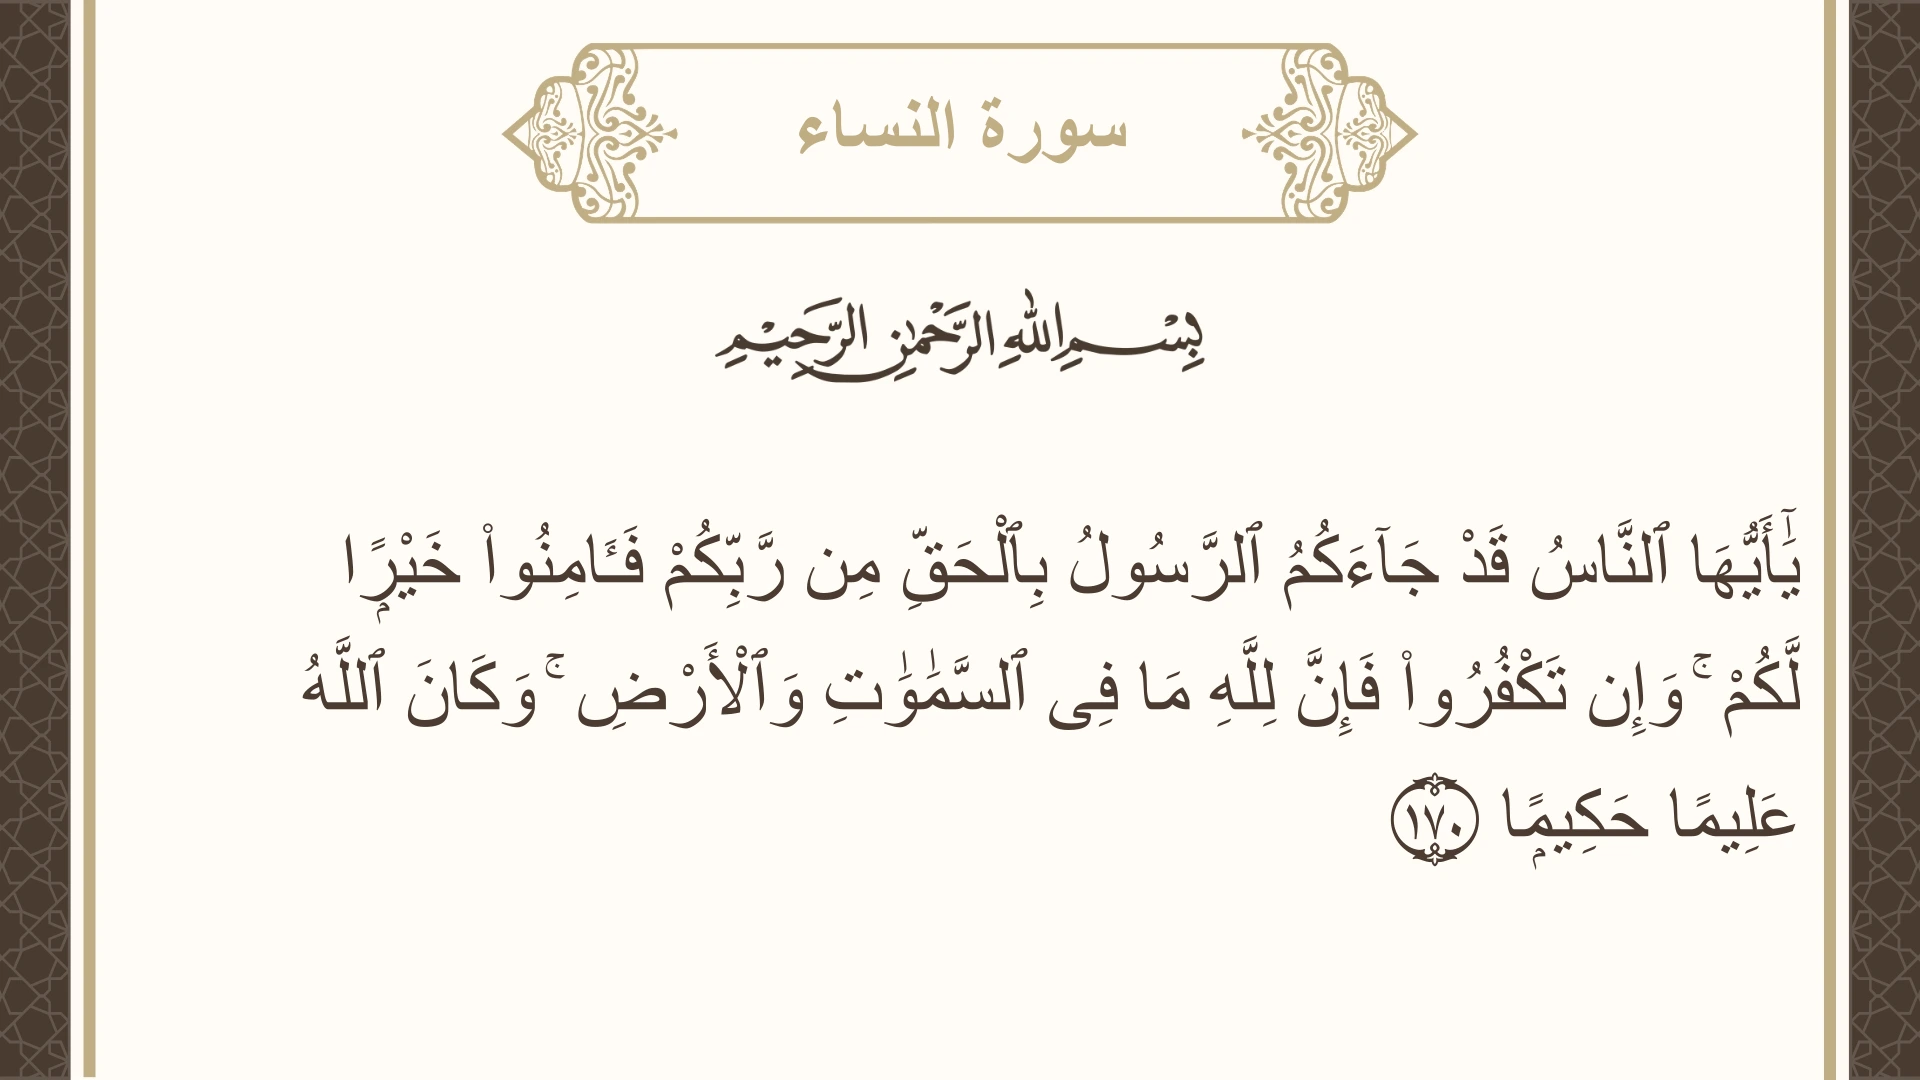 سورة النساء
بِسْمِ اللهِ الرَّحْمٰنِ الرَّحِيْمِ
يَٰٓأَيُّهَا ٱلنَّاسُ قَدْ جَآءَكُمُ ٱلرَّسُولُ بِٱلْحَقِّ مِن رَّبِّكُمْ فَـَٔامِنُوا۟ خَيْرًۭا
لَّكُمْ ۚ وَإِن تَكْفُرُوا۟ فَإِنَّ لِلَّهِ مَا فِى ٱلسَّمَٰوَٰتِ وَٱلْأَرْضِ ۚ وَكَانَ ٱللَّهُ
عَلِيمًا حَكِيمًۭا ١٧٠